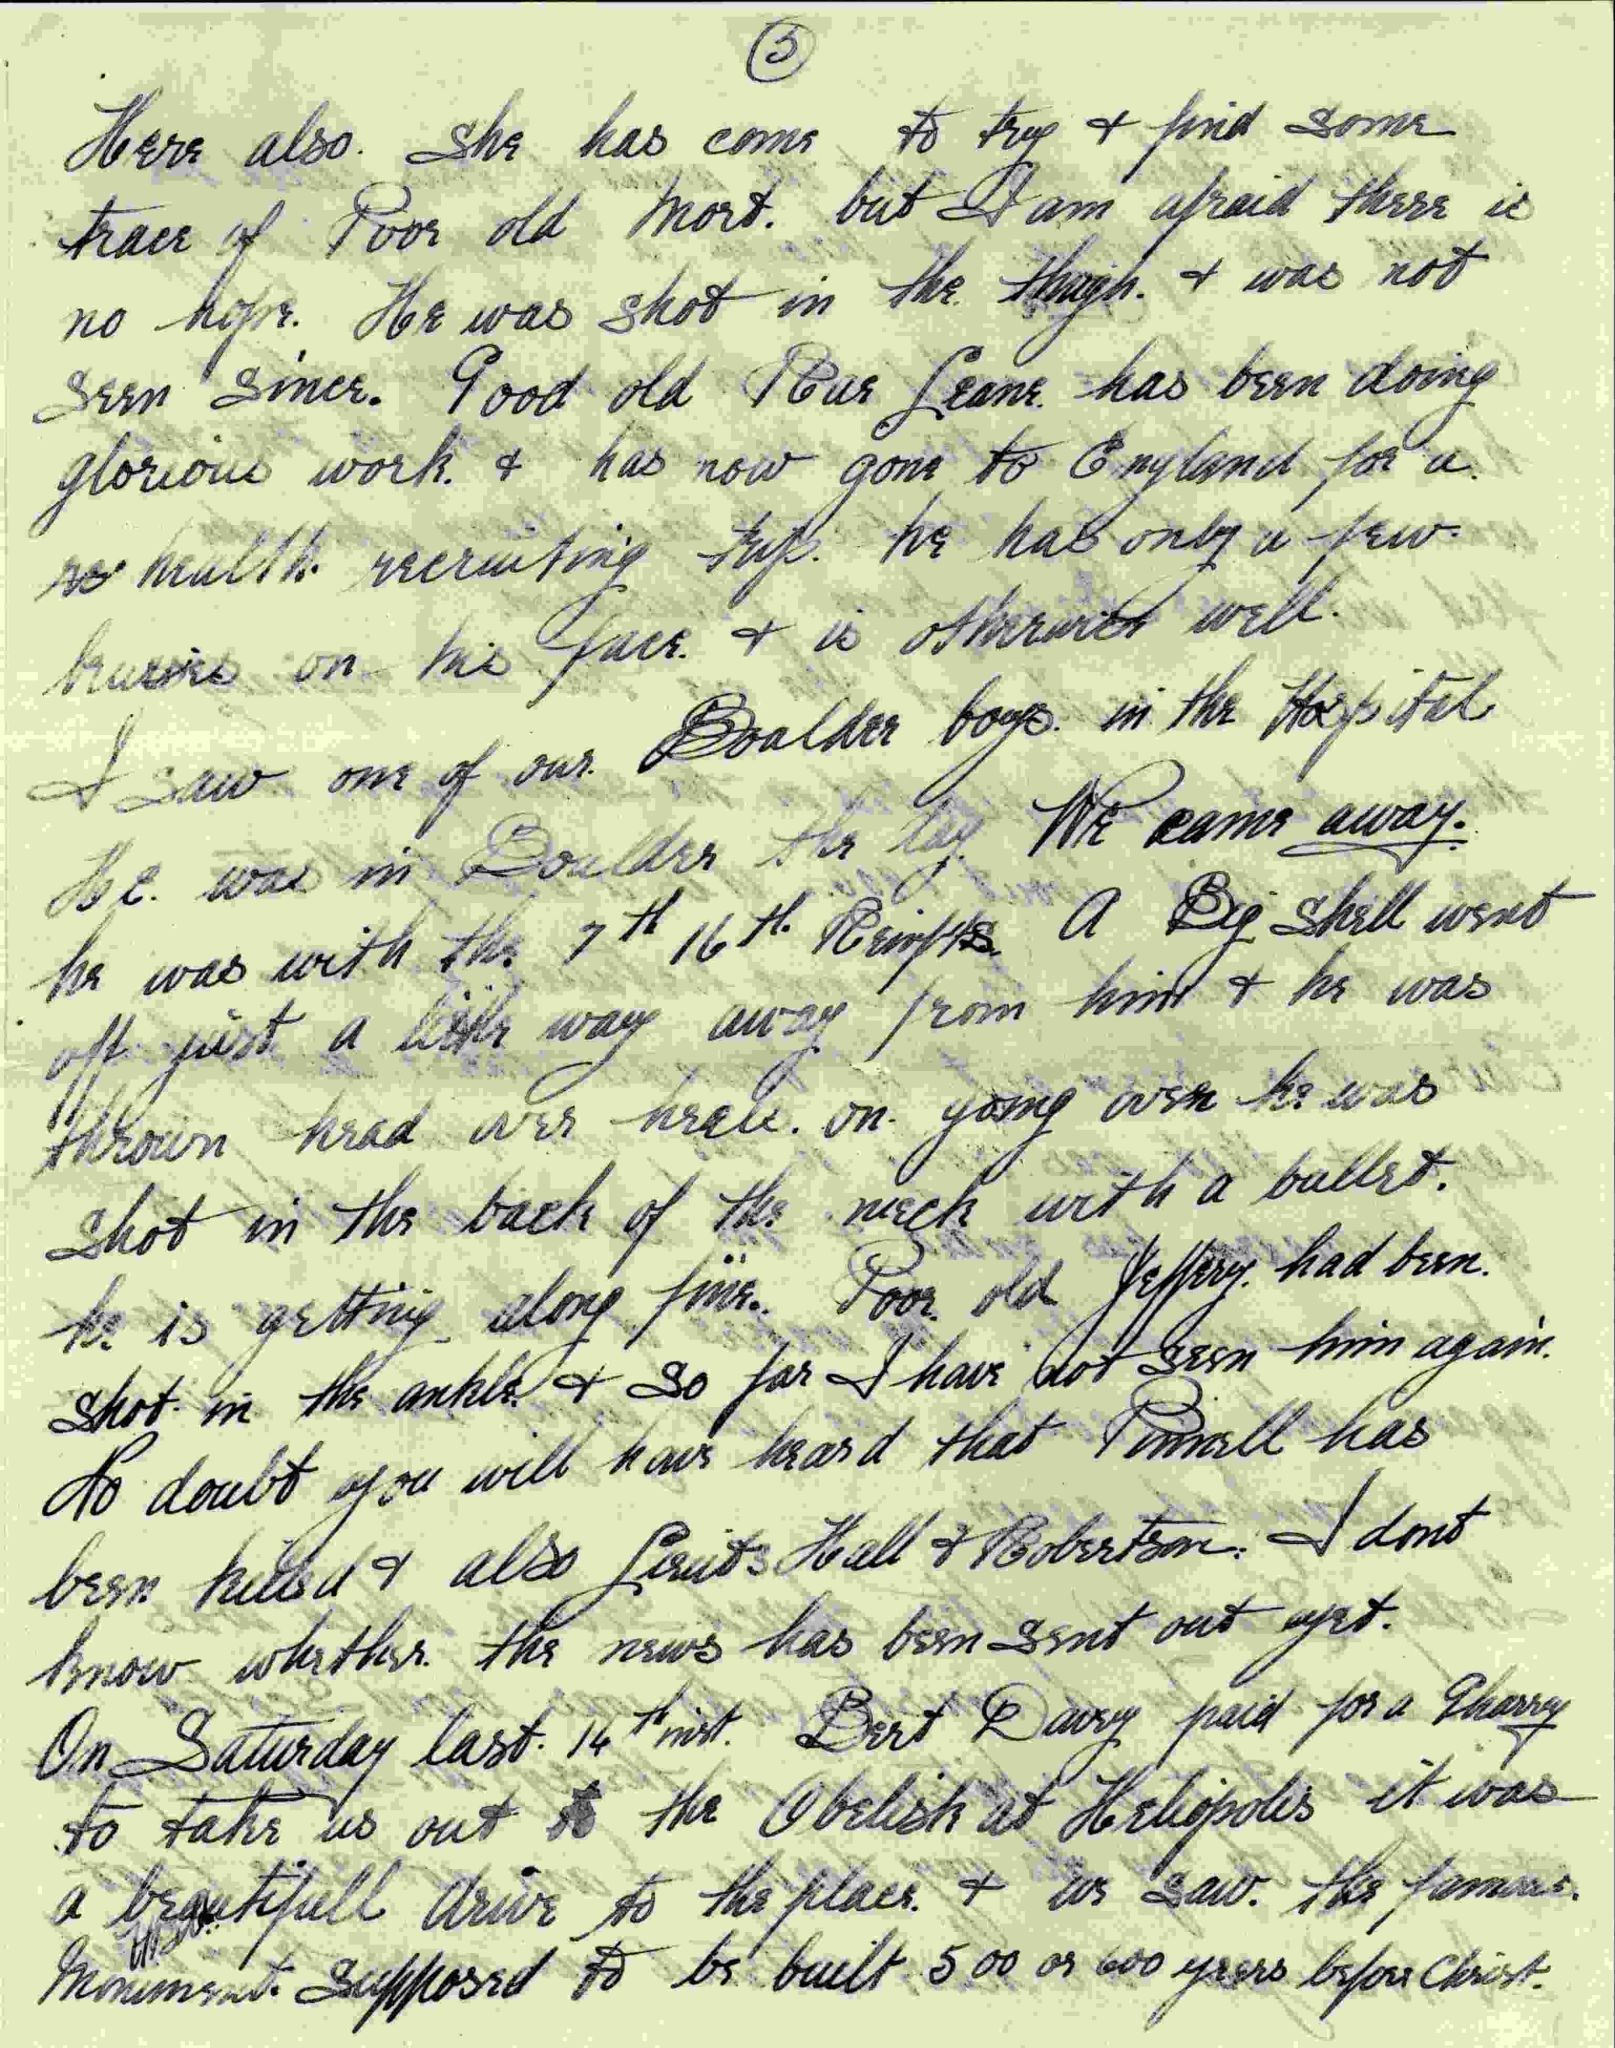 (3)
Here also. She has come to try & find some
trace of Poor old Mort. but I am afraid there is
no hope. He was shot in the thigh. & was not
seen since. Good old Rue Leane. has been doing
glorious work. & has now gone to England for a
health. recruiting trip. he has only a few
bruises on his face. & is otherwise well.
I saw one of our. Boulder boys. in the Hospital
He. was in Boulder the day We came away.
he was with the 7th 16th. Reinfts. A Big Shell went
off just a little way away from him & he was
thrown head over heals. on. going over he was
shot in the back of the neck with a bullet.
he is getting along fine. Poor. old Jeffery. had been.
shot. in the ankle. & so far I have not seen him again.
No doubt you will have heard that Pinnell has
been killed & also Lieuts Hall & Robertson. I dont
know whether. the news has been sent out yet.
On Saturday last. 14th inst. Bert Davey paid for a Gharry
to take us out to the Obelisk at Heliopolis it was
a beautifull drive to the place. & we saw. the famous.
Monument. supposed to be built 500 or 600 years before Christ.